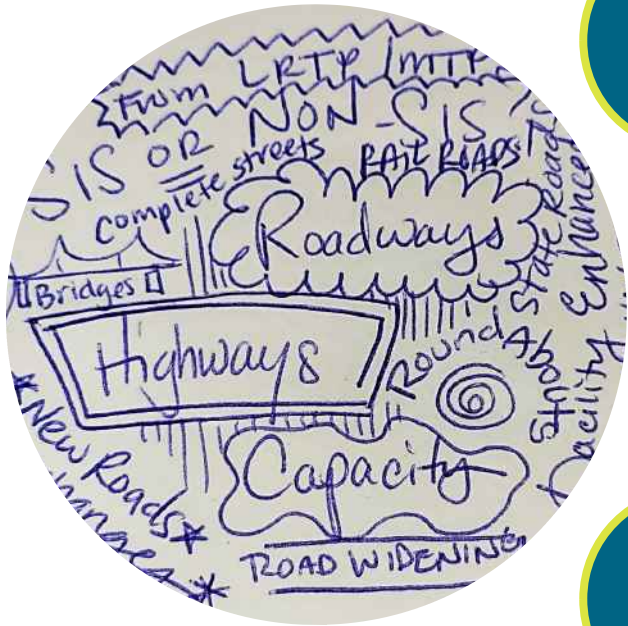 From LRTP/MTP
SIS OR NON-SIS
Complete streets
RAIL ROADS
Roadways
State Roads
Facility Enhance
Bridges
Highways
Round Abouts
*New Roads*
Capacity
ROAD WIDENING